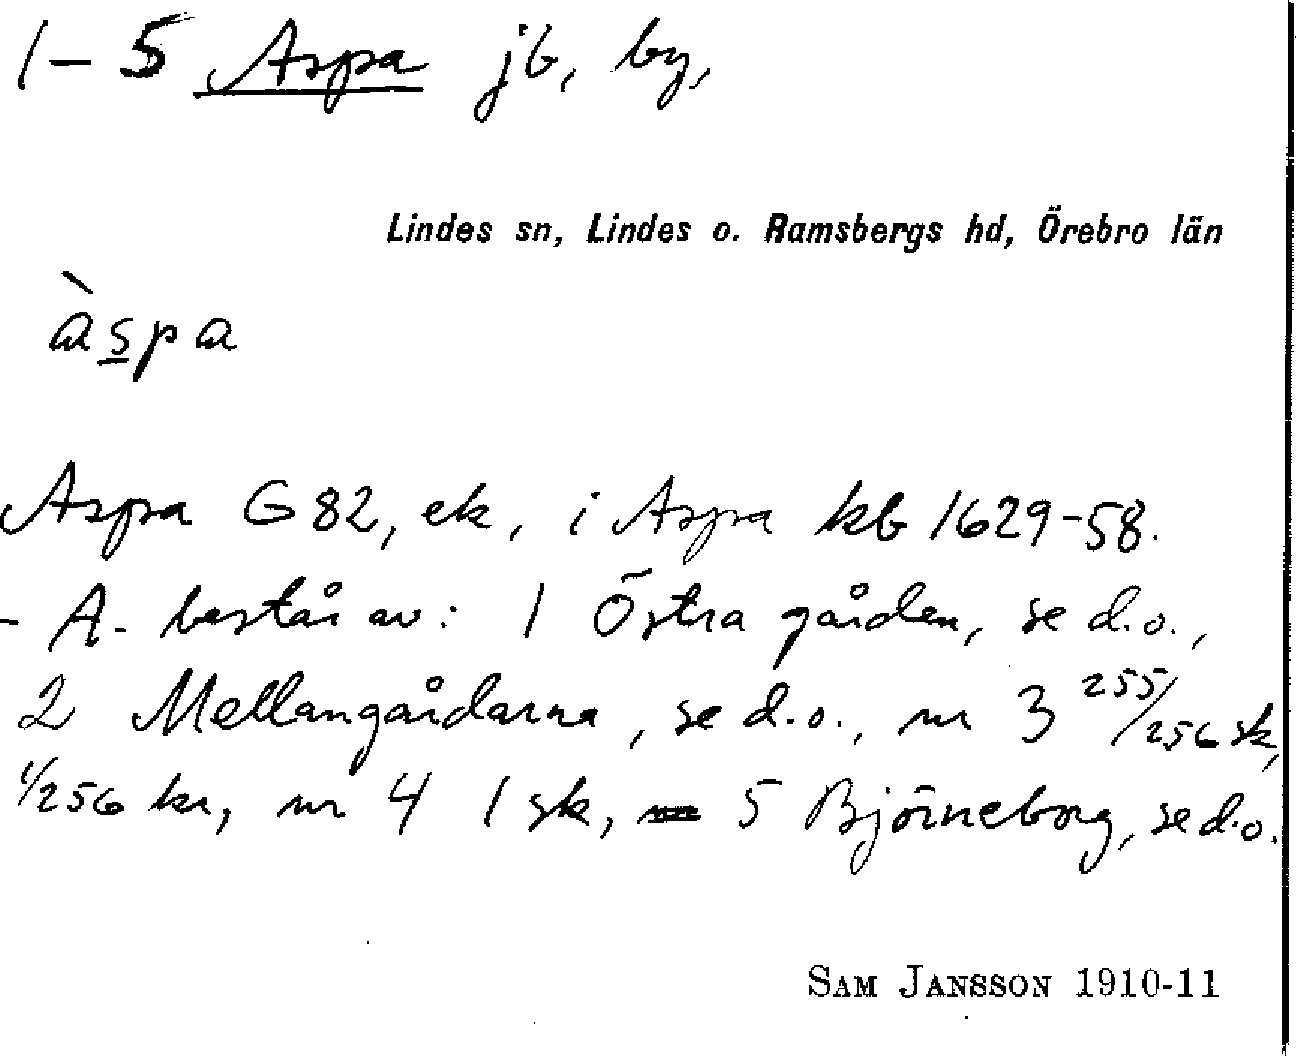 1–5 Aspa jb, by,
Lindes sn, Lindes o. Ramsbergs hd, Örebro län
àspa
Aspa G 82, ek, i Aspa kb 1629–58.
– A. består av: 1 Östra gården, se d.o.,
2 Mellangårdarna, se d.o., nr 3 255/256 sk,
1/256 kr, nr 4 1 sk, 5 Björneborg, se d.o.
SAM JANSSON 1910-11